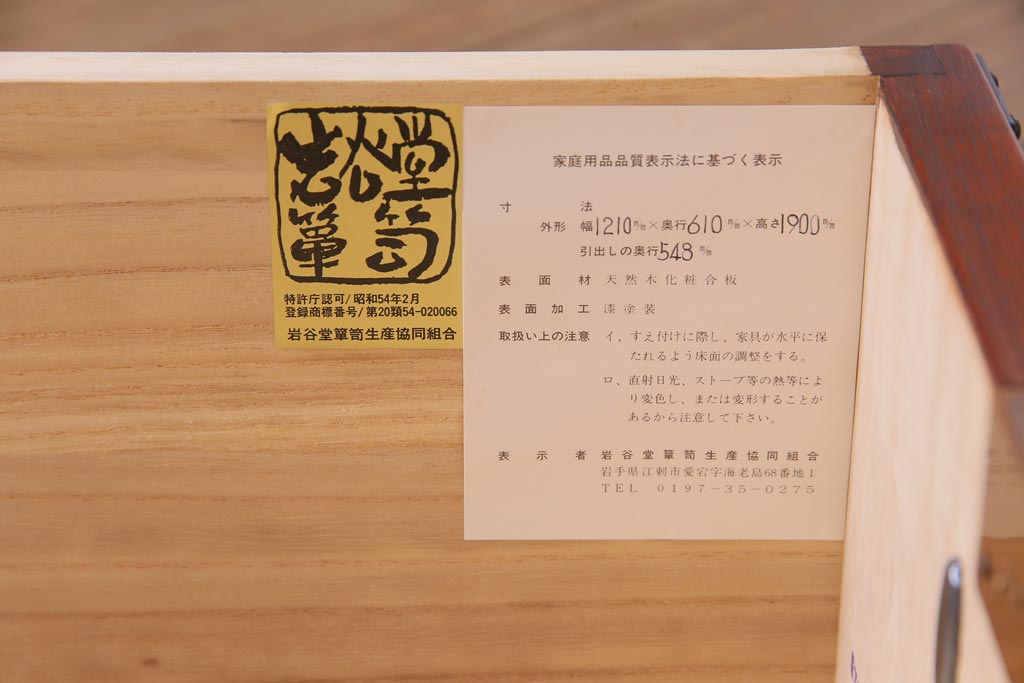 岩谷堂
箪笥
特許庁認可/昭和54年2月
登録商標番号/第20類54-020066
岩谷堂箪笥生産協同組合
家庭用品品質表示法に基づく表示
寸法
外形 幅1210m/m×奥行610m/m×高さ1900m/m
引出しの奥行548m/m
表面材 天然木化粧合板
表面加工 漆塗装
取扱い上の注意 イ、すえ付けに際し、家具が水平に保
たれるよう床面の調整をする。
ロ、直射日光、ストーブ等の熱等によ
り変色し、または変形することが
あるから注意して下さい。
表示者 岩谷堂箪笥生産協同組合
岩手県江刺市愛宕字海老島68番地1
TEL 0197-35-0275